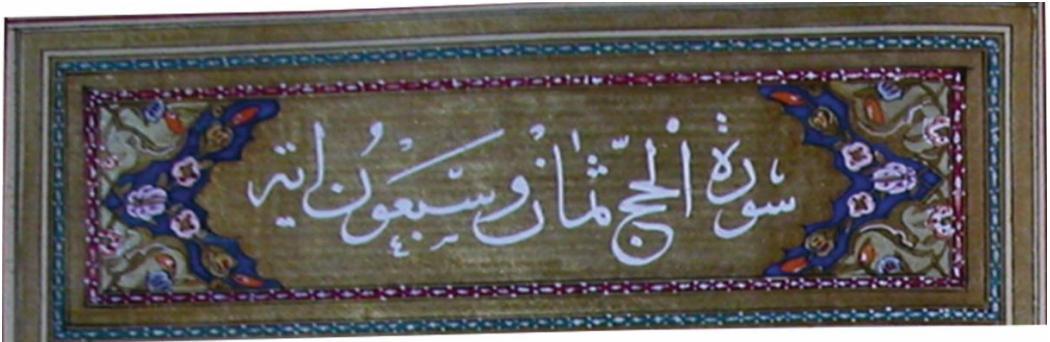 سورة الحجّ ثمان وسبعون اية